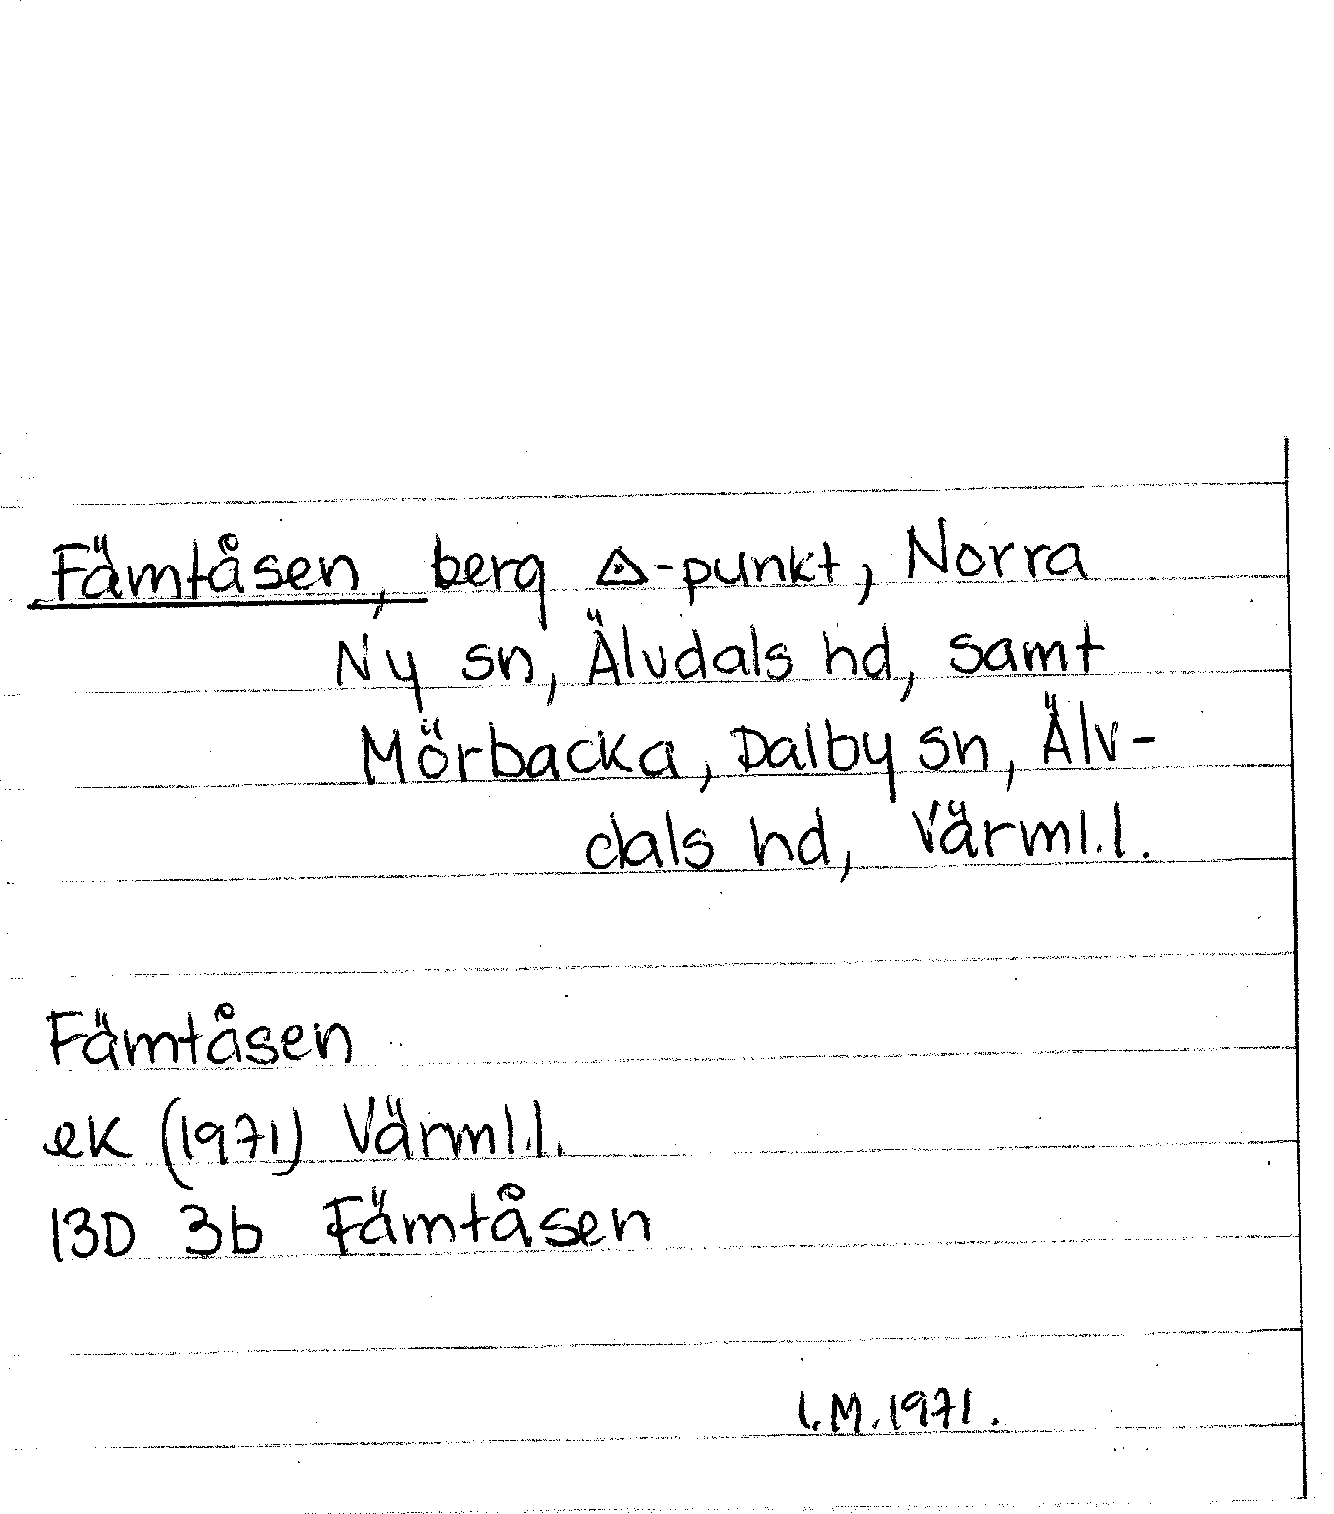 Fämtåsen, berg △-punkt, Norra
Ny sn, Älvdals hd, samt
Mörbacka, Dalby sn, Älv-
dals hd, Värml.l.
Fämtåsen
ek (1971) Värml.l.
13D 3b Fämtåsen
I.M.1971.